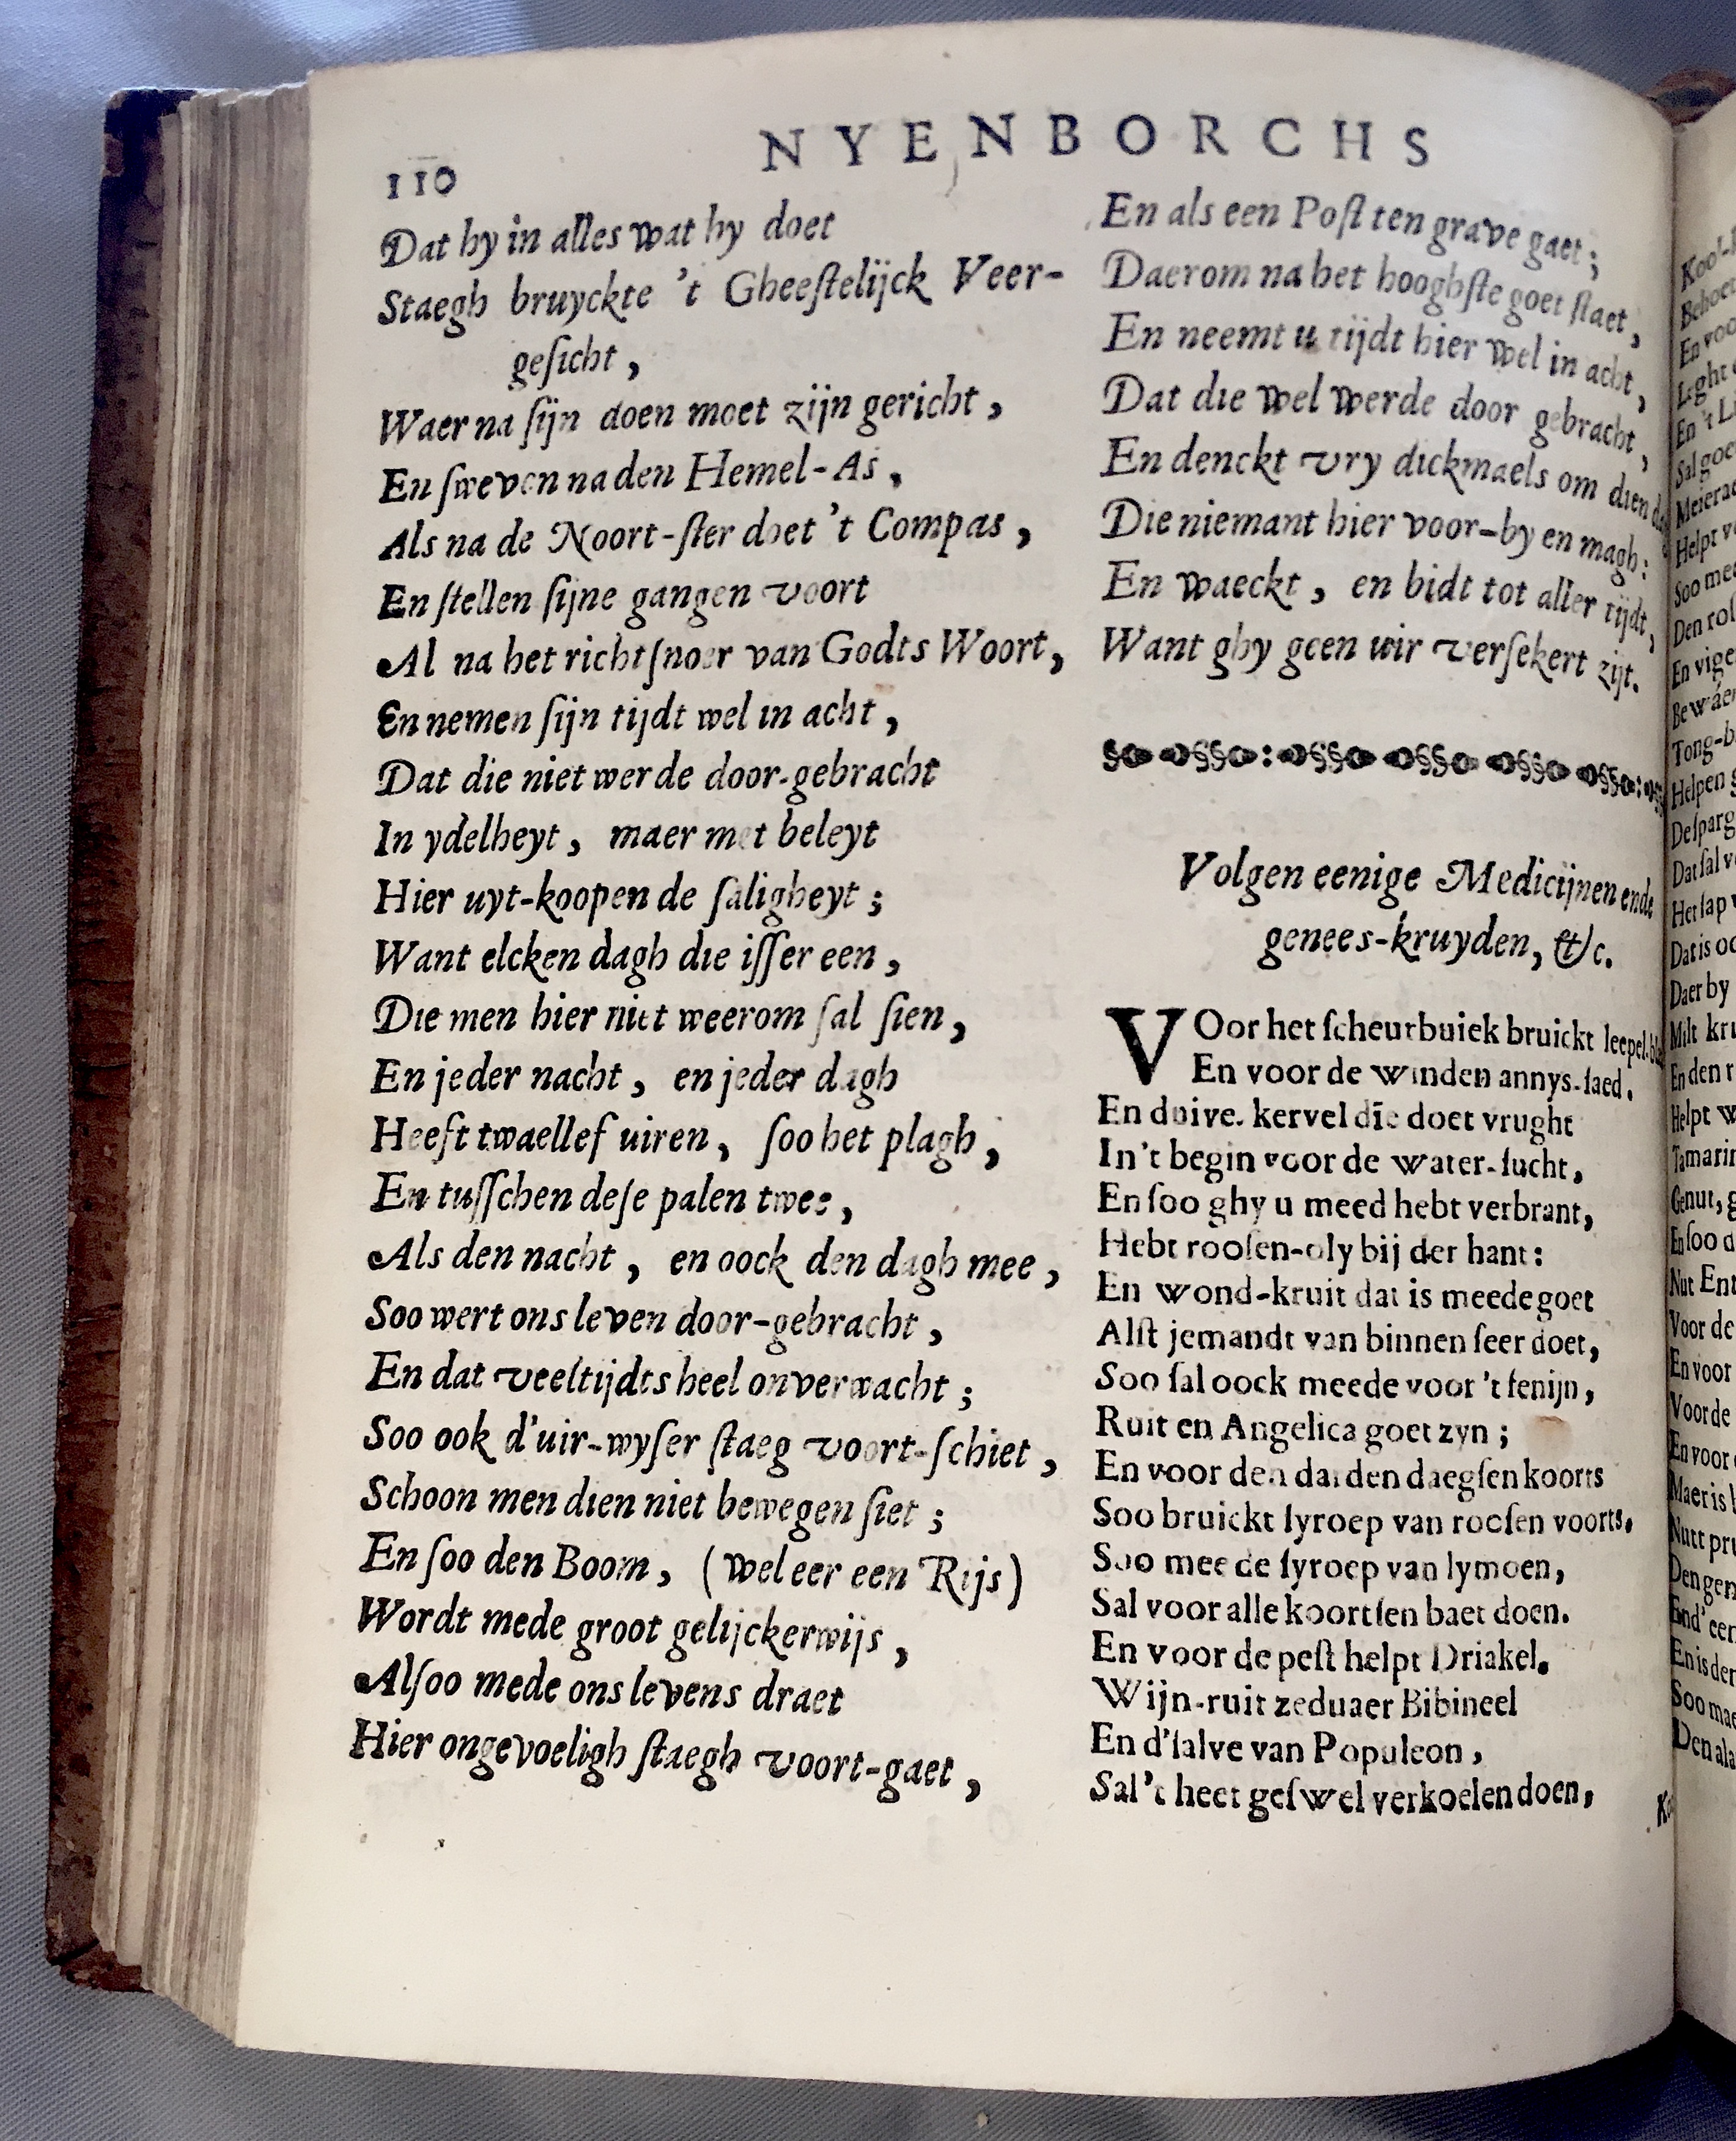 110
NYENBORCHS
Dat hy in alles wat hy doet
Staegh bruyckte 't Gheeſtelijck Veer-
geſicht,
Waer na ſijn doen moet zijn gericht,
En ſweven na den Hemel-As,
Als na de Noort-ſter doet 't Compas,
En ſtellen ſijne gangen voort
Al na het richtſnoer van Godts Woort,
En nemen ſijn tijdt wel in acht,
Dat die niet werde door-gebracht
In ydelheyt, maer met beleyt
Hier uyt-koopen de ſaligheyt;
Want elcken dagh die iſſer een,
Die men hier niet weerom ſal ſien,
En jeder nacht, en jeder dagh
Heeft twaellef uiren, ſoo het plagh,
En tuſſchen deſe palen twee,
Als den nacht, en oock den dagh mee,
Soo wert ons leven door-gebracht,
En dat veeltijdts heel onverwacht;
Soo ook d'uir-wyſer ſtaeg voort-ſchiet,
Schoon men dien niet bewegen ſiet;
En ſoo den Boom, (wel eer een Rijs)
Wordt mede groot gelijckerwijs,
Alſoo mede ons levens draet
Hier ongevoeligh ſtaegh voort-gaet,
En als een Poſt ten grave gaet;
Daerom na het hooghſte goet ſtaet,
En neemt u tijdt hier wel in acht,
Dat die wel werde door gebracht,
En denckt vry dickmaels om dien
Die niemant hier voor-by en magh:
En waeckt, en bidt tot aller tijdt,
Want ghy geen uir verſekert zijt.
Volgen eenige Medicijnen ende
genees-kruyden, &c.
VOor het ſcheurbuiek bruickt leepel-
En voor de winden annys-ſaed.
En duive. kervel die doet vrught
In't begin voor de water-ſucht,
En ſoo ghy u meed hebt verbrant,
Hebt rooſen-oly bij der hant:
En wond-kruit dat is meede goet
Alſt jemandt van binnen ſeer doet,
Soo ſal oock meede voor 't ſenijn,
Ruit en Angelica goet zyn;
En voor den darden daegſen koorts
Soo bruickt ſyroep van rooſen voorts.
Soo meede ſyroep van lymoen,
Sal voor alle koortſen baet doen.
En voor de peſt helpt Driakel.
Wijn-ruit zeduaer Bibineel
En d'ſalve van Populeon,
Sal't heet geſwel verkoelen doen,